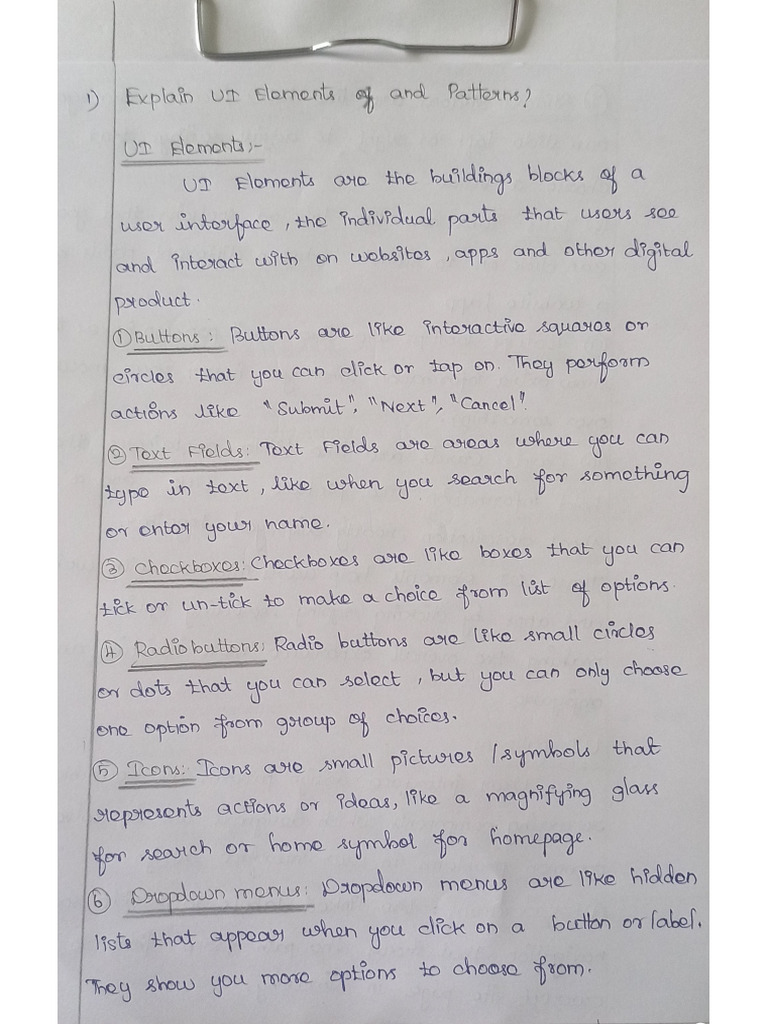 1) Explain UI Elements of and Patterns?
UI Elements:-
UI Elements are the buildings blocks of a
user interface, the individual parts that users see
and interact with on websites, apps and other digital
product.
① Buttons: Buttons are like interactive squares or
circles that you can click or tap on. They perform
actions like "Submit", "Next", "Cancel".
② Text Fields: Text Fields are areas where you can
type in text, like when you search for something
or enter your name.
③ Checkboxes: Checkboxes are like boxes that you can
tick or un-tick to make a choice from list of options.
④ Radio buttons: Radio buttons are like small circles
or dots that you can select, but you can only choose
one option from group of choices.
⑤ Icons: Icons are small pictures / symbols that
represents actions or ideas, like a magnifying glass
for search or home symbol for homepage.
⑥ Dropdown menus: Dropdown menus are like hidden
lists that appear when you click on a button or label.
They show you more options to choose from.